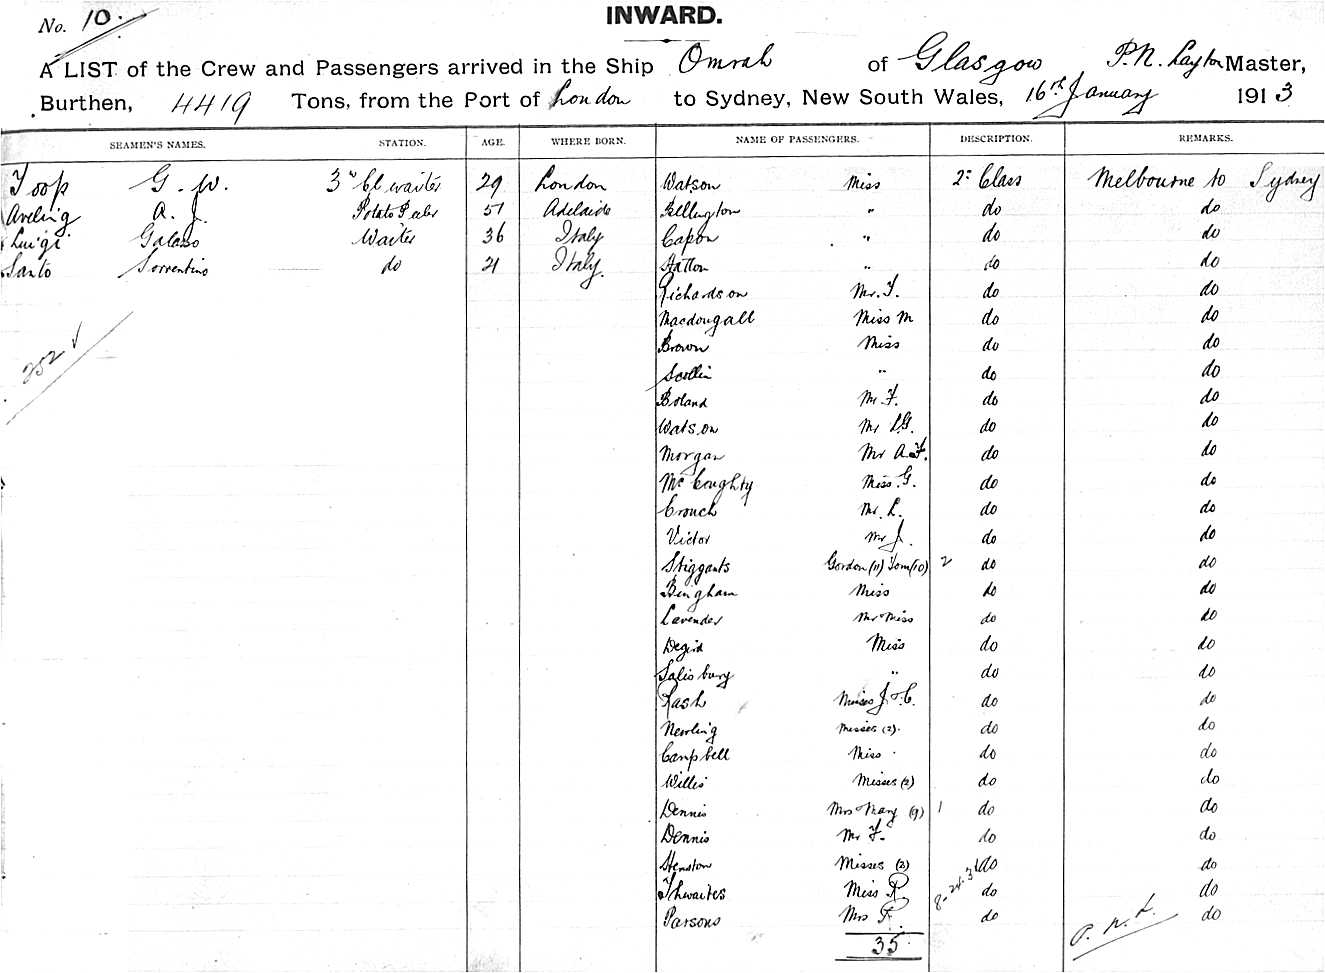 No. 10.
INWARD.
A LIST of the Crew and Passengers arrived in the Ship Omrah of Glasgow P.N. Layton Master,
Burthen, 4419 Tons, from the Port of London to Sydney, New South Wales, 16th January 1913
SEAMEN'S NAMES. STATION. AGE. WHERE BORN. NAME OF PASSENGERS. DESCRIPTION. REMARKS.
Toop G. W. 3rd Cl waiter 29 London Watson Miss 2nd Class Melbourne to Sydney
Aveling A. J. Potato Peeler 51 Adelaide Pellington " do do
Luigi Galano Waiter 36 Italy Capon " do do
Santo Sorrentino do 21 Italy. Hatton " do do
Richardson Mr. F. do do
Macdougall Miss M do do
Brown Miss do do
Scullin " do do
Boland Mr F. do do
Watson Mr L.G. do do
Morgan Mr A.F. do do
252
McCoughty Miss. G. do do
Crouch Mr. L. do do
Victor Mr J. do do
Stiggants Gordon (11) Tom (10) 2 do do
Bingham Miss do do
Lavender Mr & Miss do do
Miss do do
Salisbury " do do
Rash Misses J & C. do do
Newling Misses (2). do do
Campbell Miss do do
Willis Misses (2) do do
Dennis Mrs & Mary (9) 1 do do
Dennis Mr F. do do
Henston Misses (2) do do
Thwaites Miss R do do
8. 24. 3
Parsons Mrs F. do do
35
P. N. L.